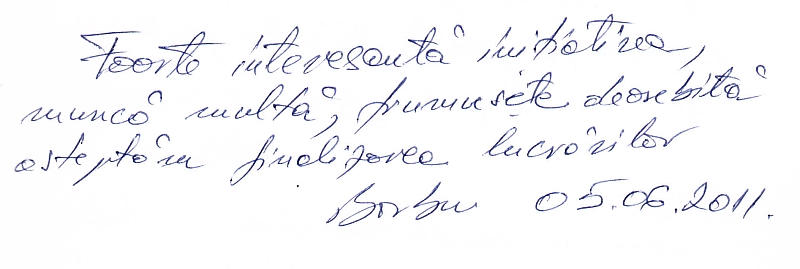 Foarte interesantă inițiativa,
muncă multă, frumusețe deosebită
așteptăm finalizarea lucrărilor
05.06.2011.